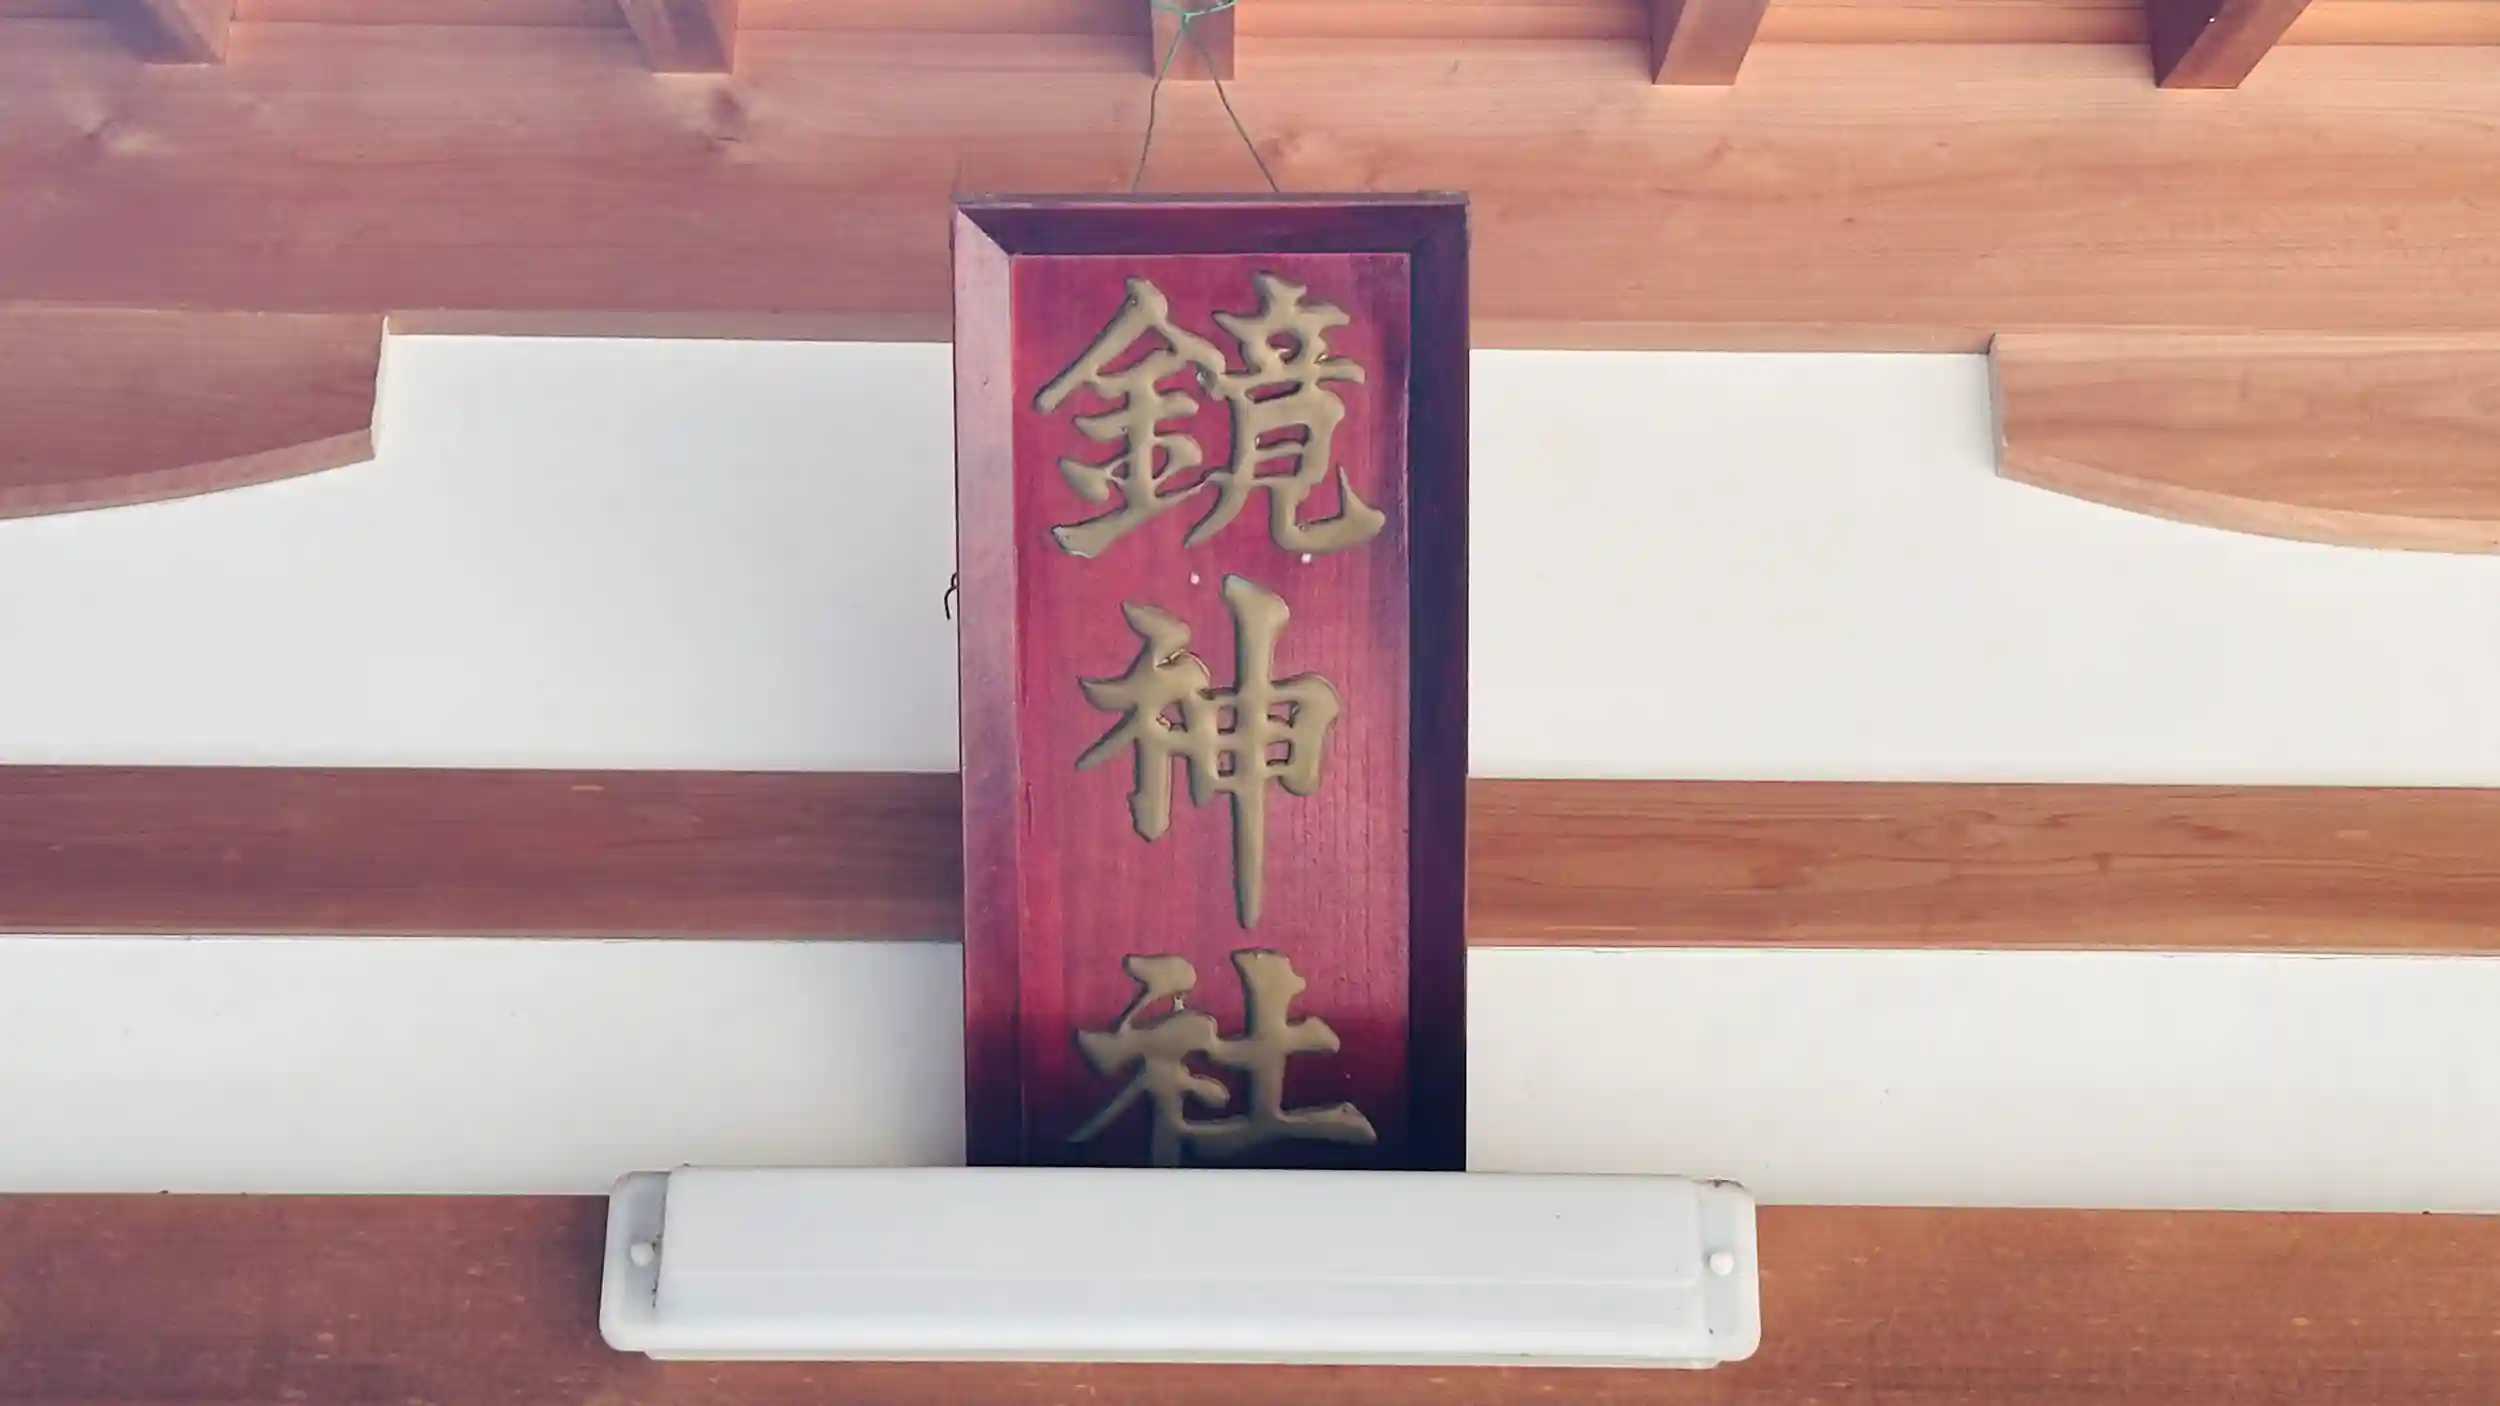 鏡神社